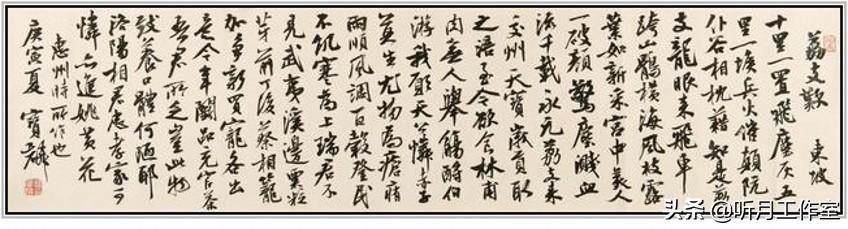 荔支歎 東坡
十里一置飛塵灰五
里一堠兵火催顛阬
仆谷相枕藉知是荔
支龍眼来飛車
跨山鶻橫海風枝露
葉如新采宮中美人
一破顏驚塵濺血
流千載永元荔支来
交州天寶歲貢取
之涪至今欲食林甫
肉無人舉觴酹伯
游我願天公憐赤子
莫生尤物為瘡痏
雨順風調百穀登民
不飢寒為上瑞君不
見武夷溪邊粟粒
芽前丁後蔡相籠
加爭新買寵各出
意今年鬭品充官茶
吾君所乏豈此物
致養口體何陋耶
洛陽相君忠孝家可
憐亦進姚黃花
惠州時所作也
庚寅夏 寶
头条 @听月工作室